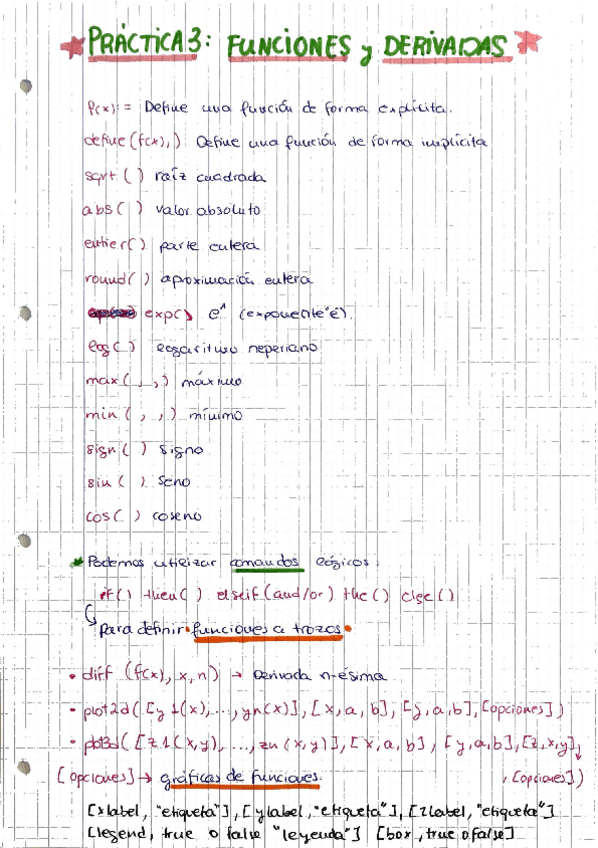 PRÁCTICA 3: FUNCIONES y DERIVADAS
f(x):= Define una función de forma explícita.
define(f(x),) Define una función de forma implícita
sqrt ( ) raíz cuadrada
abs ( ) valor absoluto
entier( ) parte entera
round( ) aproximación entera
exp() e^ (exponente "e").
log( ) logaritmo neperiano
max ( , , ) máximo
min ( , , ) mínimo
sign ( ) signo
sin ( ) seno
cos( ) coseno
* Podemos utilizar comandos lógicos:
if() then() elseif (and/or) the () else ()
para definir funciones a trozos.
• diff (f(x), x, n) → Derivada n-ésima
• plot2d ([y1(x),...,yn(x)], [x,a,b], [y,a,b], [opciones])
• plot3d([z1(x,y),...,zn(x,y)], [x,a,b], [y,a,b], [z,x,y],
, [opciones])
[opciones] → gráficas de funciones.
[xlabel, "etiqueta"], [ylabel, "etiqueta"], [zlabel, "etiqueta"]
[legend, true o false "leyenda"] [box, true o false]